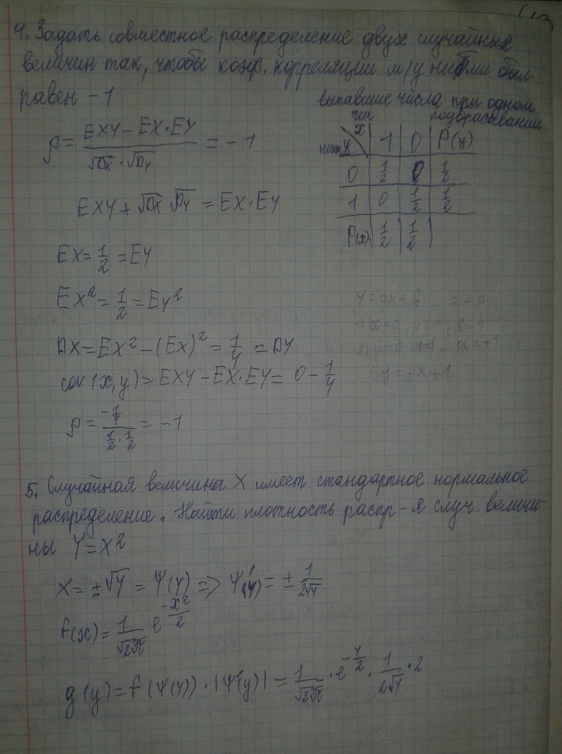 4. Задать совместное распределение двух случайных
величин так, чтобы коэф. корреляции м/у ними был
равен -1
выпавшие числа при одном
подбрасывании
чет
X
нечет Y | -1 | 0 | P(y)
0 | 1/2 | 0 | 1/2
1 | 0 | 1/2 | 1/2
P(x) | 1/2 | 1/2
ρ = (EXY - EX·EY)/(√Dx · √Dy) = -1
EXY + √Dx √Dy = EX·EY
EX = 1/2 = EY
EX² = 1/2 = EY²
DX = EX² - (EX)² = 1/4 = DY
cov(x,y) = EXY - EX·EY = 0 - 1/4
y = -x + 1
ρ = (-1/4)/(1/2 · 1/2) = -1
5. Случайная величины X имеет стандартное нормальное
распределение. Найти плотность распр-я случ. величи-
ны Y = X²
X = ±√Y = Ψ(Y) => Ψ'(y) = ± 1/(2√Y)
f(x) = 1/√2π e^(-x²/2)
g(y) = f(Ψ(Y)) · |Ψ'(y)| = 1/√2π · e^(-Y/2) · 1/(2√Y) · 2